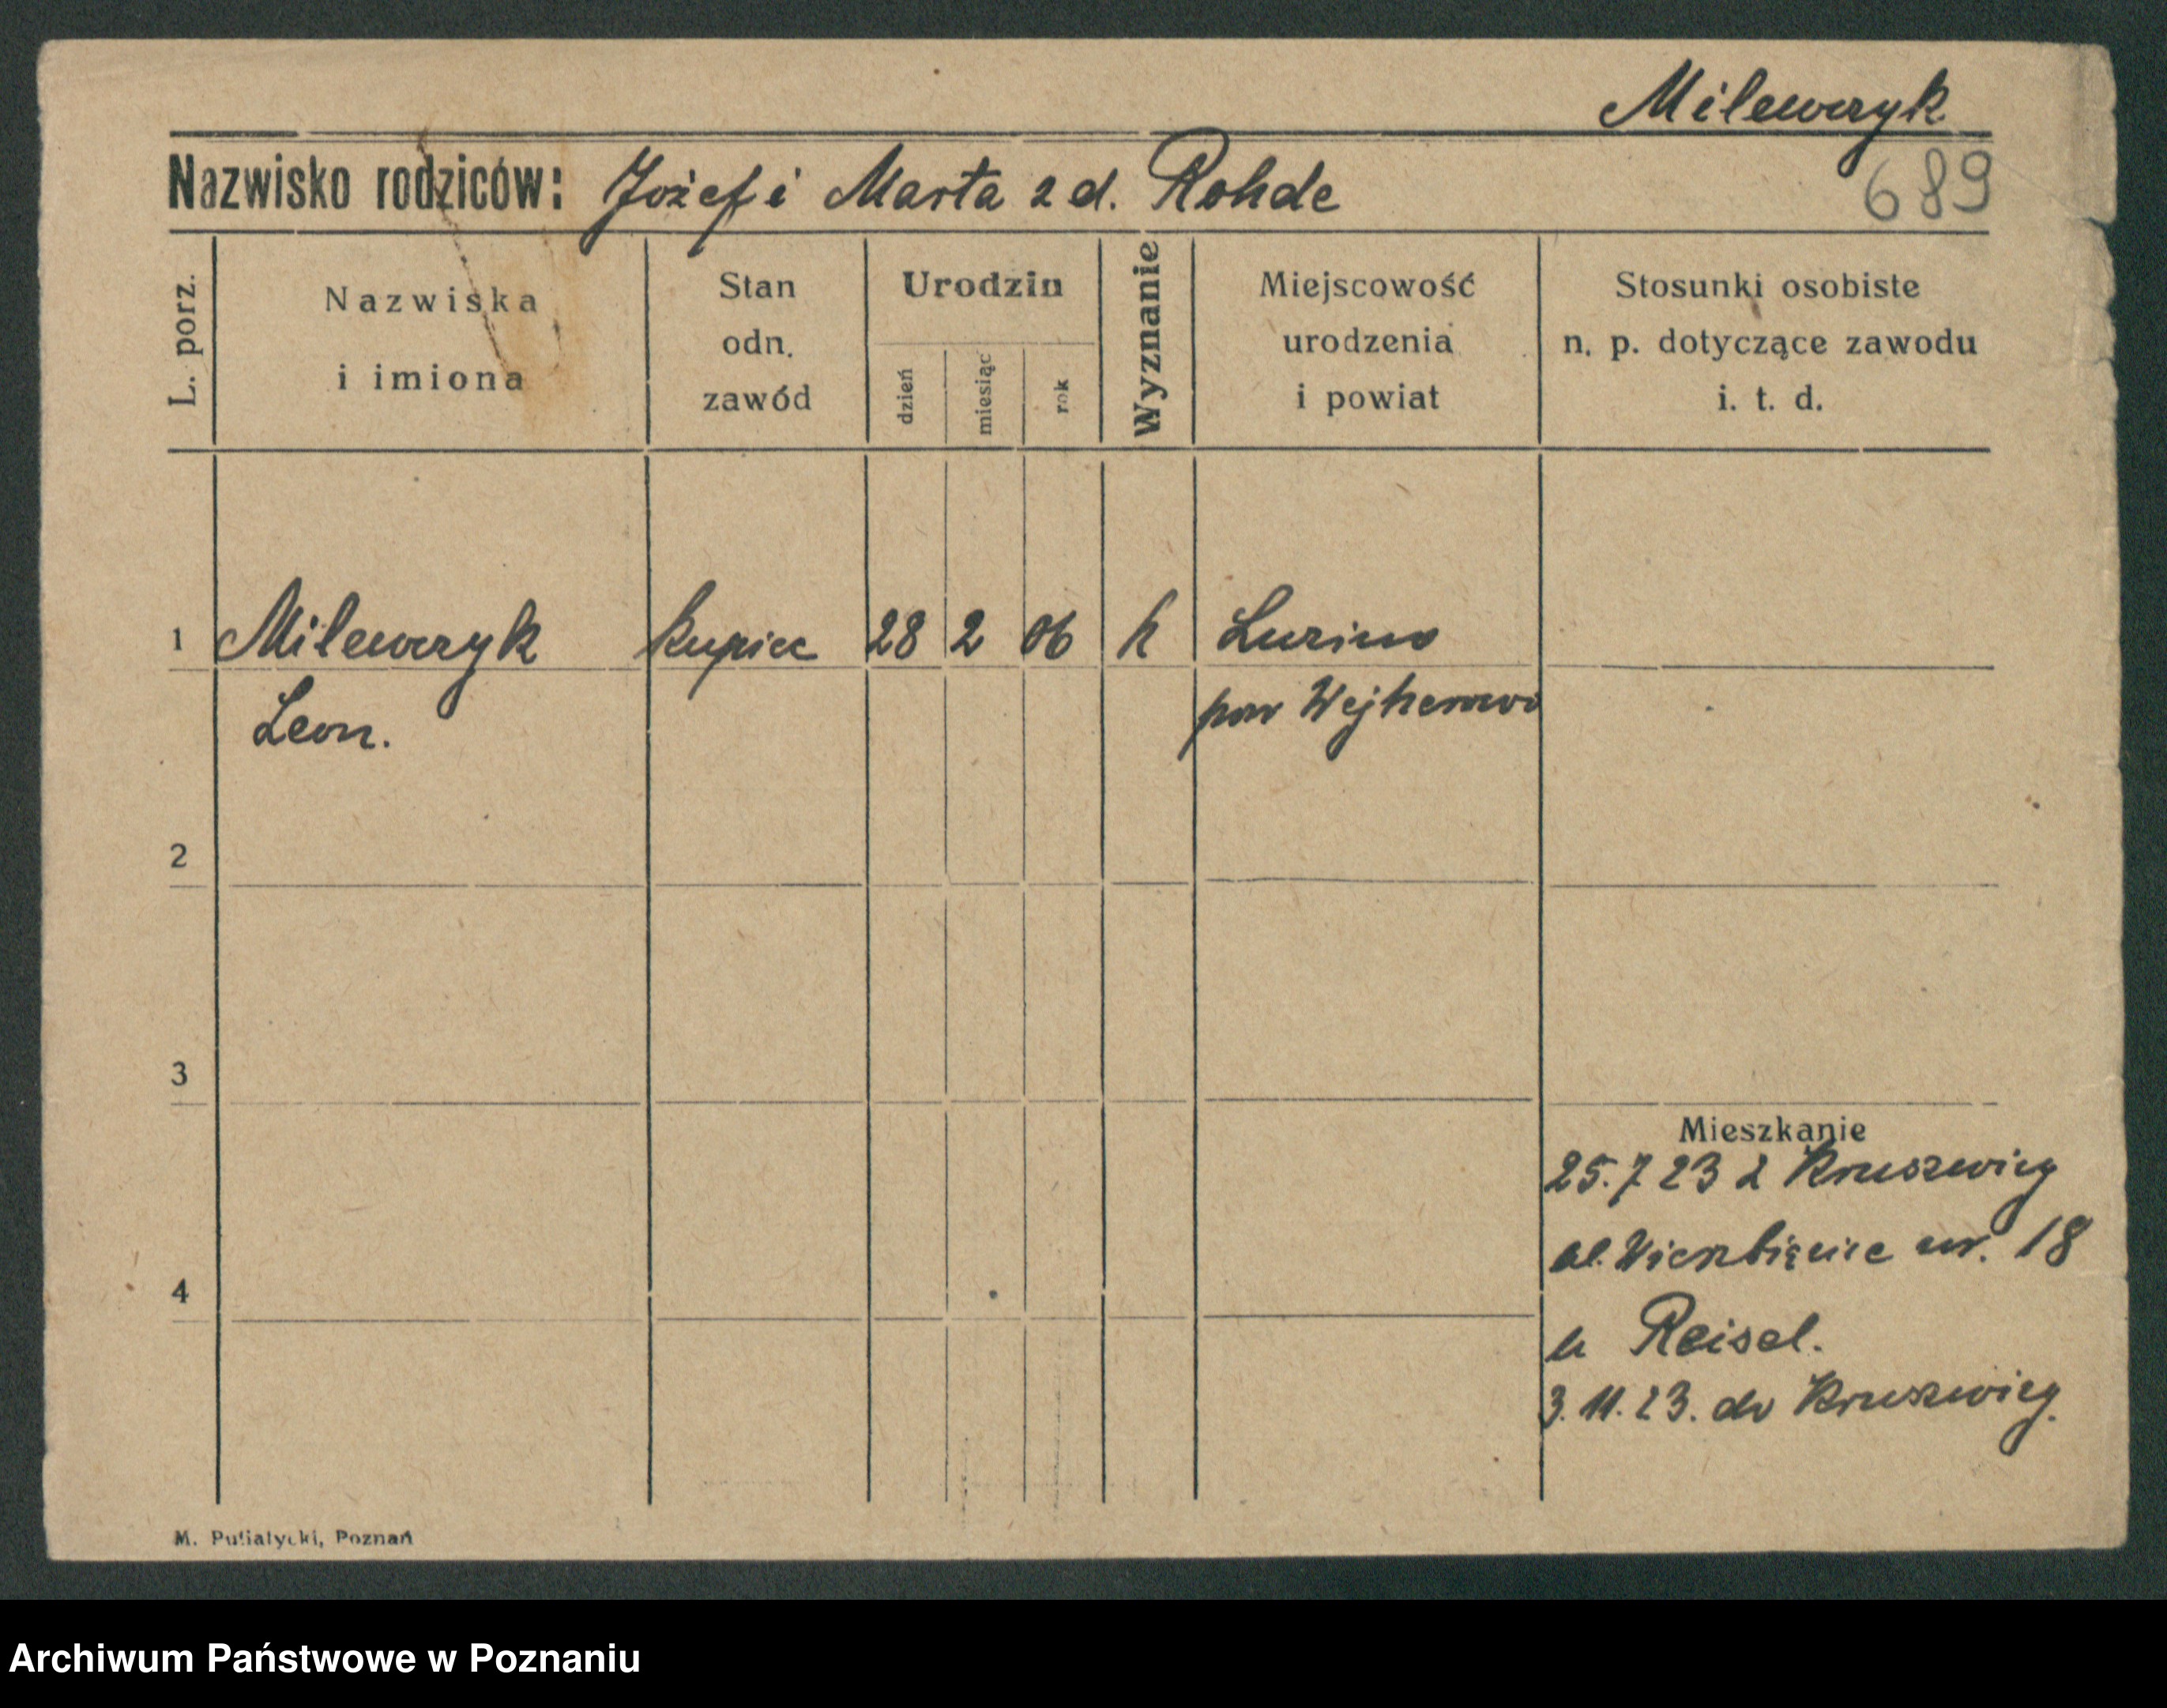 Milewczyk
Nazwisko rodziców: Józef i Marta z d. Rohde
689
L. porz.
Nazwiska
i imiona
Stan
odn.
zawód
Urodzin
dzień
miesiąc
rok
Wyznanie
Miejscowość
urodzenia
i powiat
Stosunki osobiste
n. p. dotyczące zawodu
i. t. d.
1 Milewczyk kupiec 28 2 06 k Luzino
Leon. pow Wejherowo
2
3
Mieszkanie
25.7 23 z Kruszwicy
ul. Wierzbięcice nr. 18
4
u Reisel.
3.11.23. do Kruszwicy.
M. Putiatycki, Poznań
Archiwum Państwowe w Poznaniu